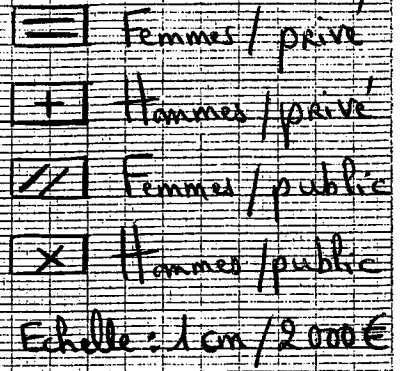 Femmes / privé
Hommes / privé
Femmes / public
Hommes / public
Echelle : 1 cm / 2 000 €